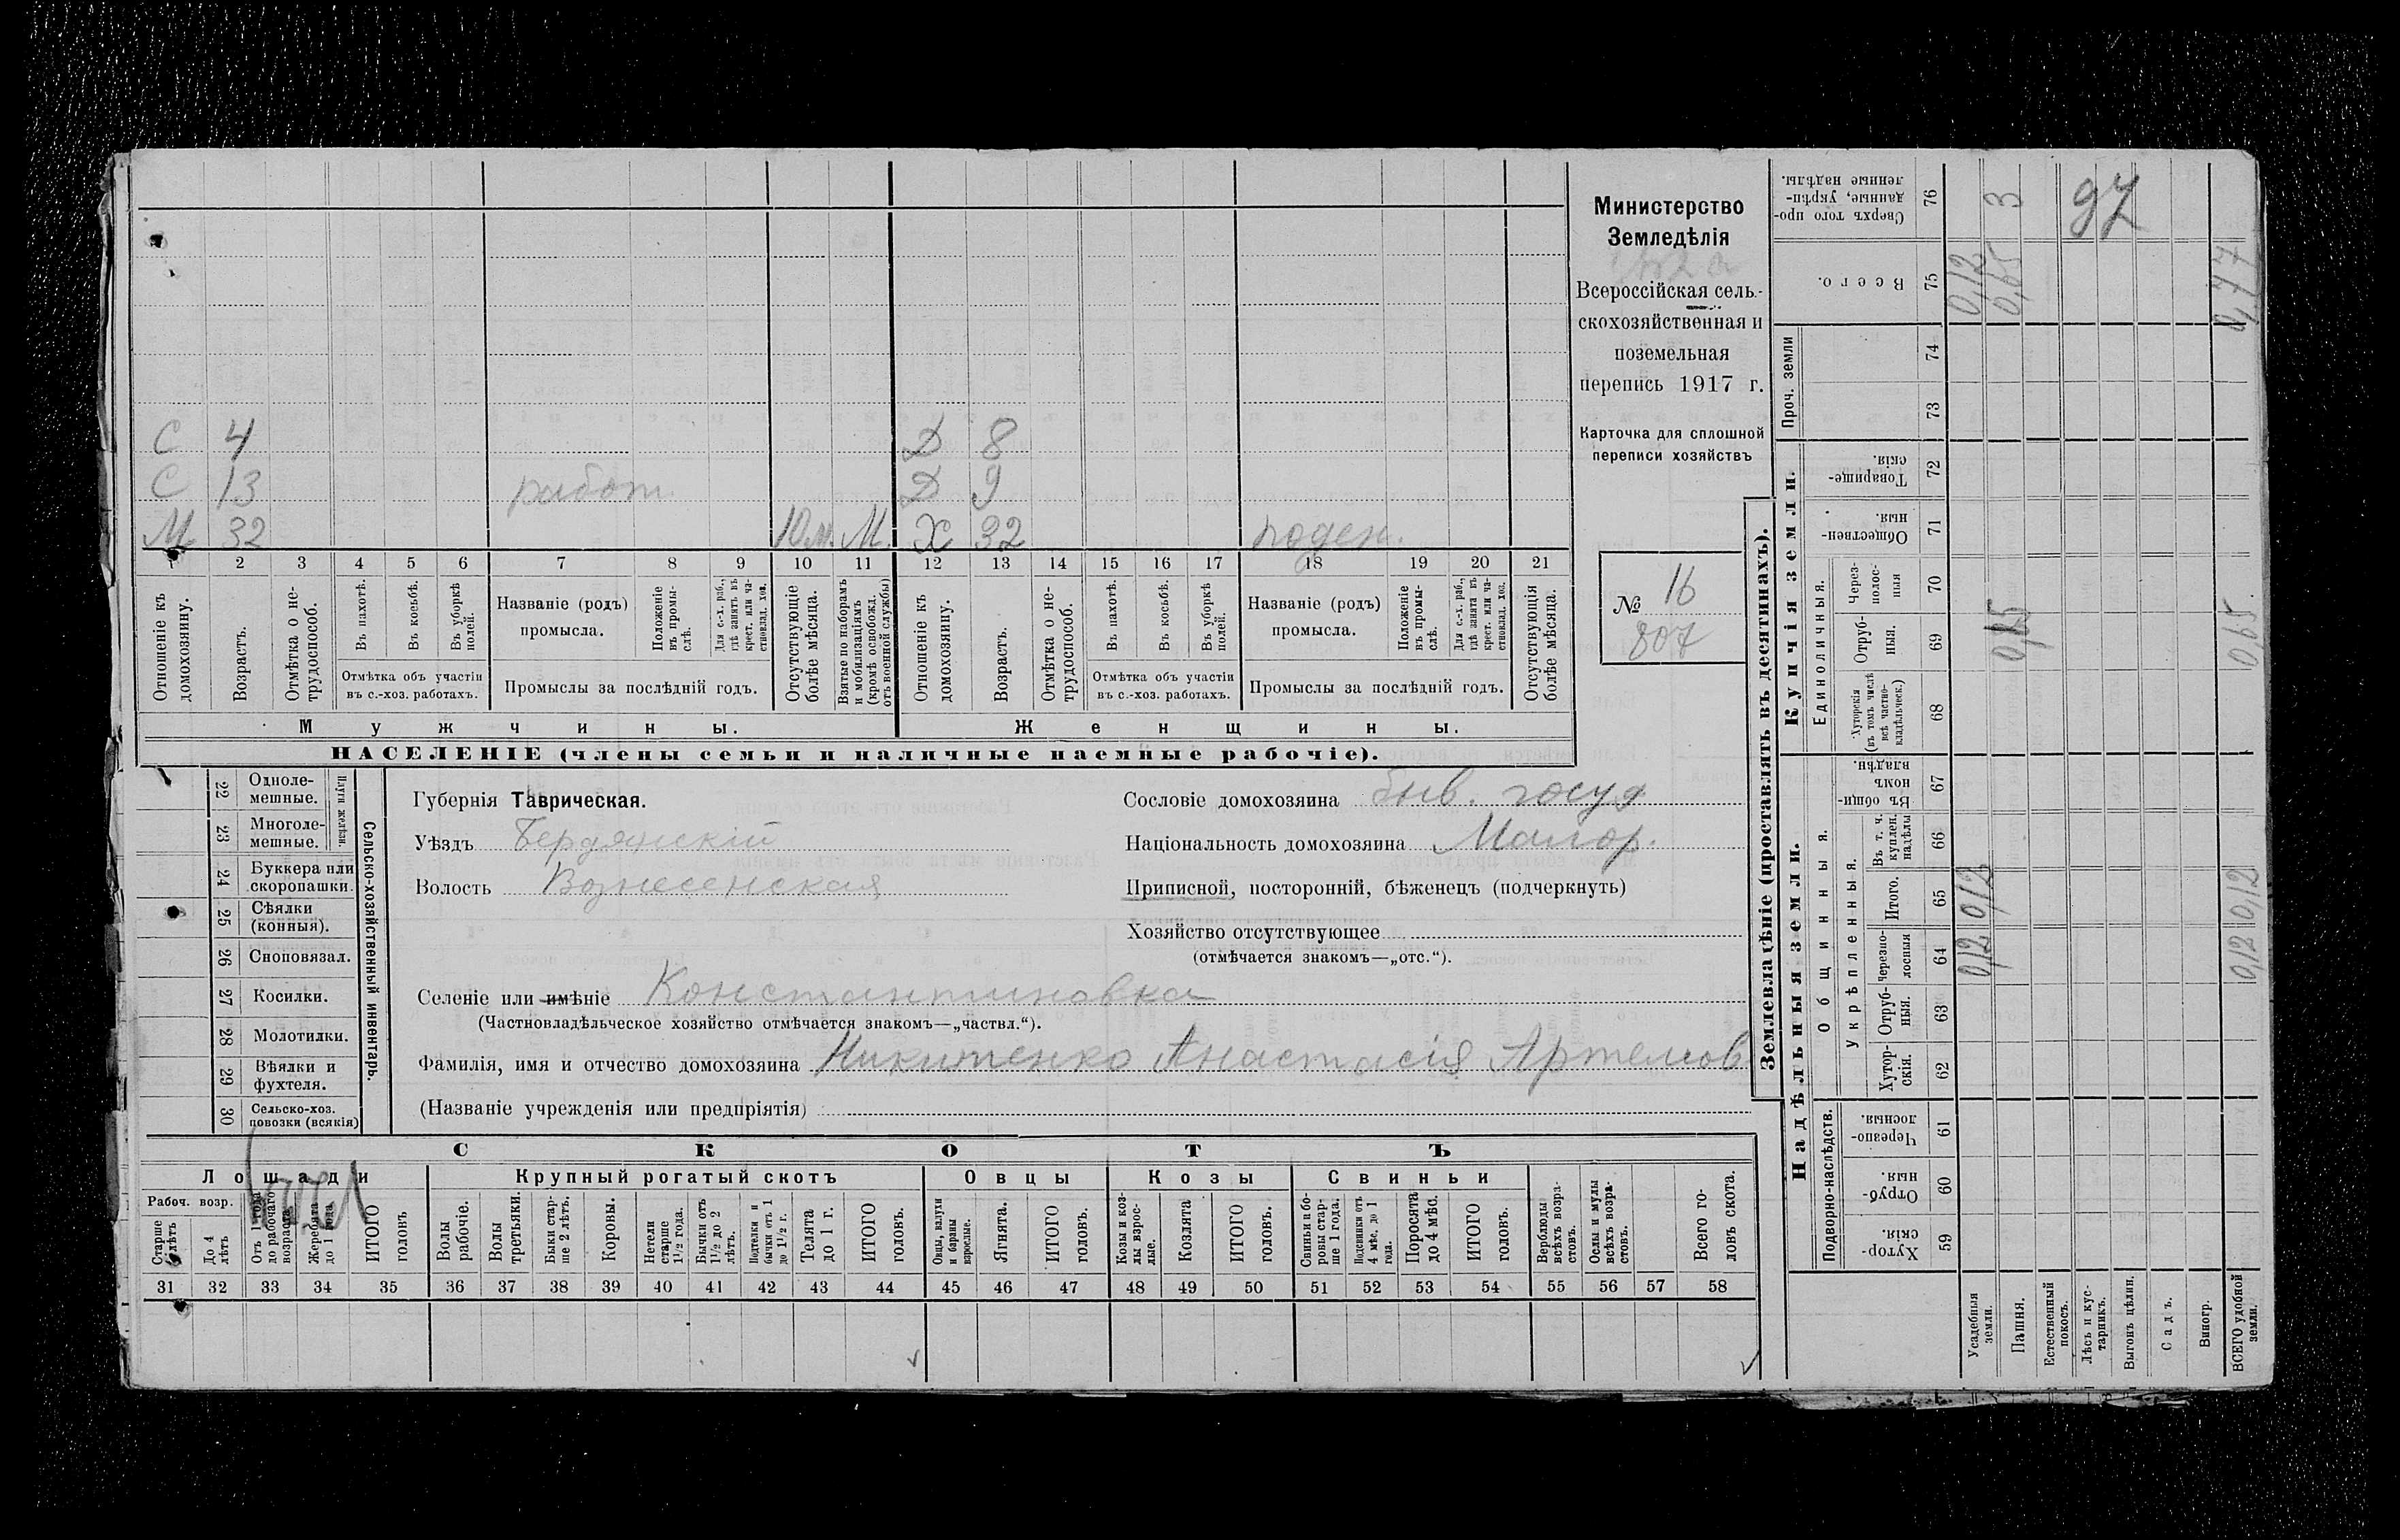 С 4 Д 8
С 13 работ Д 9
М 32 10 м. М. Х 32 поден.
1 2 3 4 5 6 7 8 9 10 11 12 13 14 15 16 17 18 19 20 21
Отношеніе къ домохозяину.
Возрастъ.
Отмѣтка о не-трудоспособ.
Въ пахотѣ.
Въ косьбѣ.
Въ уборкѣ полей.
Отмѣтка объ участіи
въ с.-хоз. работахъ.
Названіе (родъ)
промысла.
Положеніе въ промы-слѣ.
Для с.-х. раб., гдѣ занятъ въ крест. или ча-стновлад. хоз.
Промыслы за послѣдній годъ.
Отсутствующіе болѣе мѣсяца.
Взятые по наборамъ и мобилизаціямъ (кромѣ освобожд. отъ военной службы)
Отношеніе къ домохозяину.
Возрастъ.
Отмѣтка о не-трудоспособ.
Въ пахотѣ.
Въ косьбѣ.
Въ уборкѣ полей.
Отмѣтка объ участіи
въ с.-хоз. работахъ.
Названіе (родъ)
промысла.
Положеніе въ промы-слѣ.
Для с.-х. раб., гдѣ занята въ крест. или ча-стновлад. хоз.
Промыслы за послѣдній годъ.
Отсутствующія болѣе мѣсяца.
Мужчины.
Женщины.
НАСЕЛЕНІЕ (члены семьи и наличные наемные рабочіе).
Министерство
Земледѣлія
Всероссійская сель-
скохозяйственная и
поземельная
перепись 1917 г.
Карточка для сплошной
переписи хозяйствъ
№ 16
807
22 Одноле-
мешные.
23 Многоле-
мешные.
Плуги желѣзн.
24 Буккера или
скоропашки.
25 Сѣялки
(конныя).
26 Сноповязал.
27 Косилки.
28 Молотилки.
29 Вѣялки и
фухтеля.
30 Сельско-хоз.
повозки (всякія)
Сельско-хозяйственный инвентарь.
Губернія Таврическая.
Уѣздъ Бердянскій
Волость Вознесенская
Сословіе домохозяина быв. госуд
Національность домохозяина Малор.
Приписной, посторонній, бѣженецъ (подчеркнуть)
Хозяйство отсутствующее
(отмѣчается знакомъ—„отс.“).
Селеніе или имѣніе Константиновка
(Частновладѣльческое хозяйство отмѣчается знакомъ—„частвл.“).
Фамилія, имя и отчество домохозяина Никитенко Анастасія Артемов
(Названіе учрежденія или предпріятія)
СКОТЪ
Лошади Крупный рогатый скотъ Овцы Козы Свиньи
Рабоч. возр.
Старше 4 лѣтъ
До 4 лѣтъ
Отъ 1 года до рабочаго возраста
Жеребята до 1 года
ИТОГО головъ
Волы рабочіе.
Волы третьяки.
Быки стар-ше 2 лѣтъ.
Коровы.
Нетели старше 1½ года.
Бычки отъ 1½ до 2 лѣтъ.
Подтелки и бычки отъ 1 до 1½ г.
Телята до 1 г.
ИТОГО головъ.
Овцы, валухи и бараны взрослые.
Ягнята.
ИТОГО головъ.
Козы и коз-лы взрос-лые.
Козлята
ИТОГО головъ.
Свиньи и бо-ровы стар-ше 1 года.
Подсвинки отъ 4 мѣс. до 1 года.
Поросята до 4 мѣс.
ИТОГО головъ.
Верблюды всѣхъ возра-стовъ.
Ослы и мулы всѣхъ возра-стовъ.
Всего го-ловъ скота.
31 32 33 34 35 36 37 38 39 40 41 42 43 44 45 46 47 48 49 50 51 52 53 54 55 56 57 58
Землевладѣніе (проставлять въ десятинахъ).
Надѣльныя земли.
Купчія земли.
Проч. земли
Подворно-наслѣдств.
Общинныя.
Укрѣпленныя.
Единоличныя.
Хутор-скія. 59
Отруб-ныя. 60
Черезпо-лосныя. 61
Хутор-скія. 62
Отруб-ныя. 63
Черезпо-лосныя 64 0,12 0,12
Итого. 65 0,12 0,12
Въ т. ч. куплен. надѣлы 66
Въ общи-номъ владѣн. 67
Хуторскія (въ томъ числѣ всѣ частно-владѣльческ.) 68
Отруб-ныя. 69 0,65 0,65
Через-полос-ныя 70
Обществен-ныя. 71
Товарище-скія. 72
73
74
Всего. 75 0,12 0,65 0,77
Сверхъ того про-данные, укрѣп-ленные надѣлы. 76 3 97
Усадебныя земли.
Пашня.
Естественный покосъ.
Лѣсъ и кус-тарникъ.
Выгонъ цѣлин.
Садъ.
Виногр.
ВСЕГО удобной земли.